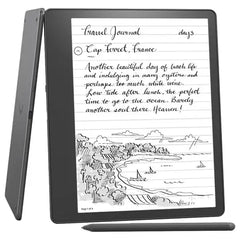 Travel Journal day 5
Cap Ferret, France
Another beautiful day of beach life
and indulging in many oysters and
perhaps too much white wine.
Low tide after lunch, the perfect
time to go to the ocean. Barely
another soul there. Heaven!